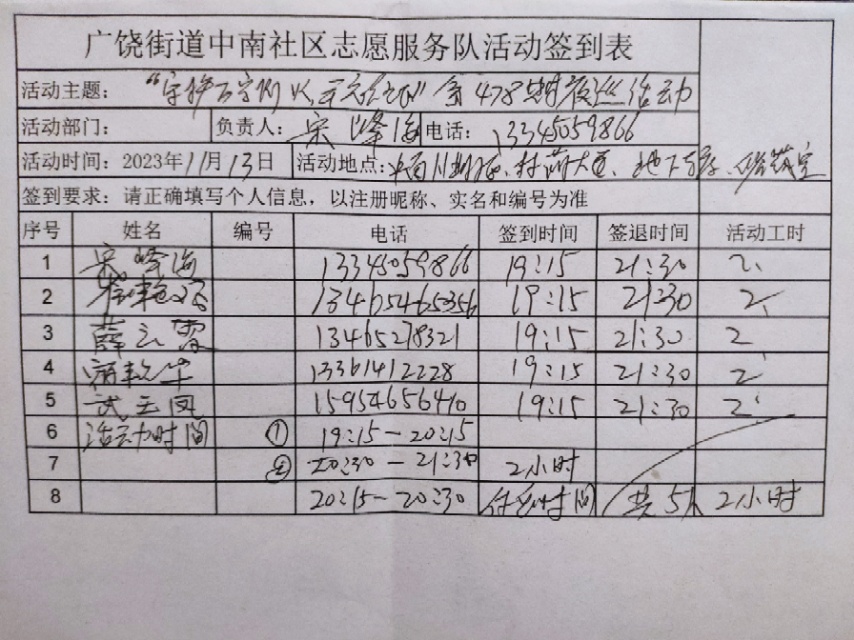 广饶街道中南社区志愿服务队活动签到表
活动主题: 478 夜巡活动
活动部门: 负责人: 宋峰海 电话: 13345059866
活动时间: 2023年11月13日 活动地点:
签到要求: 请正确填写个人信息，以注册昵称、实名和编号为准
序号 姓名 编号 电话 签到时间 签退时间 活动工时
1 宋峰海 13345059866 19:15 21:30 2
2 13465465356 19:15 21:30 2
3 薛云霞 13465278321 19:15 21:30 2
4 13361412228 19:15 21:30 2
5 武玉凤 15954656410 19:15 21:30 2
6 活动时间 ① 19:15-20:15
7 ② 20:30-21:30 2小时
8 20:15-20:30 休息时间 共5人 2小时